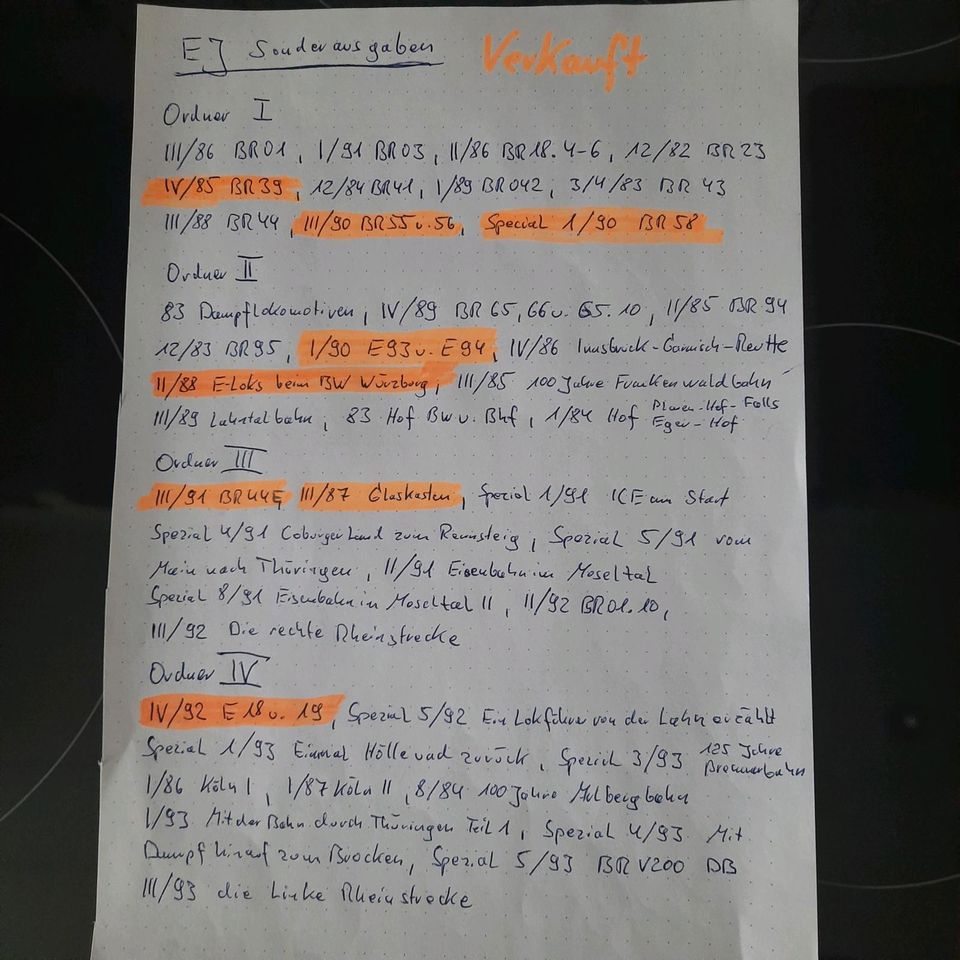 EJ Sonderausgaben Verkauft
Ordner I
III/86 BR01, I/91 BR03, II/86 BR18.4-6, 12/82 BR23
IV/85 BR39, 12/84 BR41, I/89 BR042, 3/4/83 BR 43
III/88 BR44, III/90 BR55 u. 56, Special 1/90 BR58
Ordner II
83 Dampflokomotiven, IV/89 BR 65, 66 u. 65.10, II/85 BR94
12/83 BR95, I/90 E93 u. E94, IV/86 Innsbruck-Garmisch-Reutte
II/88 E-Loks beim BW Würzburg, III/85 100 Jahre Frankenwaldbahn
III/89 Lahntalbahn, 83 Hof BW u. Bhf, 1/84 Hof Plauen-Hof-Falls
Eger-Hof
Ordner III
III/91 BR44E III/87 Glaskasten, Spezial 1/91 ICE am Start
Spezial 4/91 Coburger Land zum Rennsteig, Spezial 5/91 vom
Main nach Thüringen, II/91 Eisenbahn im Moseltal
Spezial 8/91 Eisenbahn im Moseltal II, II/92 BR01.10,
III/92 Die rechte Rheinstrecke
Ordner IV
IV/92 E18 u. 19, Spezial 5/92 Ein Lokführer von der Lahn erzählt
Spezial 1/93 Einmal Hölle und zurück, Spezial 3/93 125 Jahre
Brennerbahn
I/86 Köln I, I/87 Köln II, 8/84 100 Jahre
I/93 Mit der Bahn durch Thüringen Teil 1, Spezial 4/93 Mit
Dampf hinauf zum Brocken, Spezial 5/93 BR V200 DB
III/93 die Linke Rheinstrecke